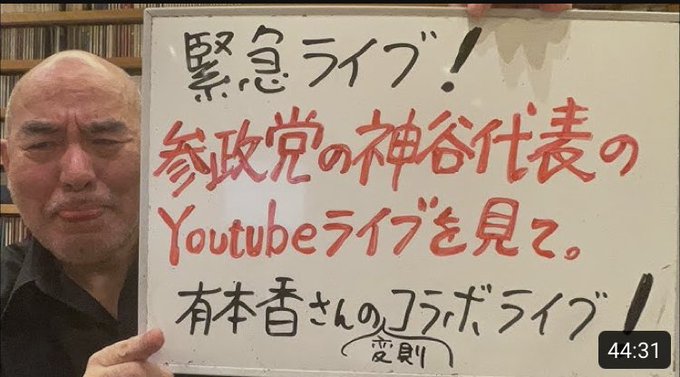 緊急ライブ!
参政党の神谷代表の
Youtubeライブを見て。
有本香さんのコラボライブ!
変則
44:31